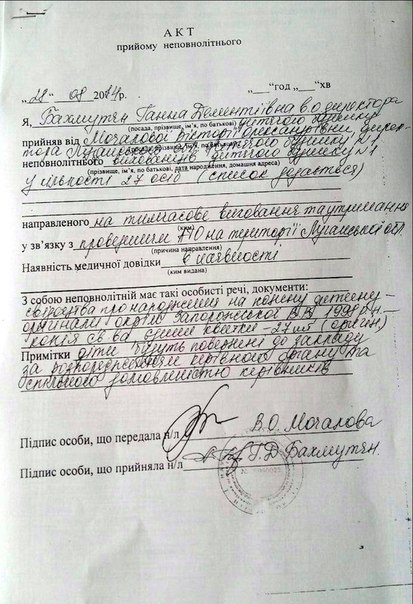 АКТ
прийому неповнолітнього
„28" 08 2014р. „___"год „___"хв
Я, Бахмутян Ганна Дементіївна в.о директора
(посада, прізвище, ім'я, по батькові) дитячого будинку
прийняв від Мочалової Вікторії Олександрівни, дирек-
тора Луганського дитячого будинку №1
неповнолітнього вихованців дитячого будинку №1
(прізвище, ім'я, по батькові, дата народження, домашна адреса)
у кількості 27 осіб (список додається)
направленого на тимчасове виховання та утримання
(ким)
у зв'язку з проведенням АТО на території Луганської обл.
(причина направлення)
Наявність медичної довідки в наявності
(ким видана)
З собою неповнолітній має такі особисті речі, документи:
свідоцтва про народження на кожну дитину -
оригінали окрім Запорожської В.В 1998 р.н. -
копія св-ва, єдиние квитки - 27 шт (оригін)
Примітки діти будуть повернені до закладу
за розпорядженням керівного органу та
спільною домовленістю керівників
Підпис особи, що передала н/л В.О. Мочалова
Підпис особи, що прийняла н/л Г.Д Бахмутян.